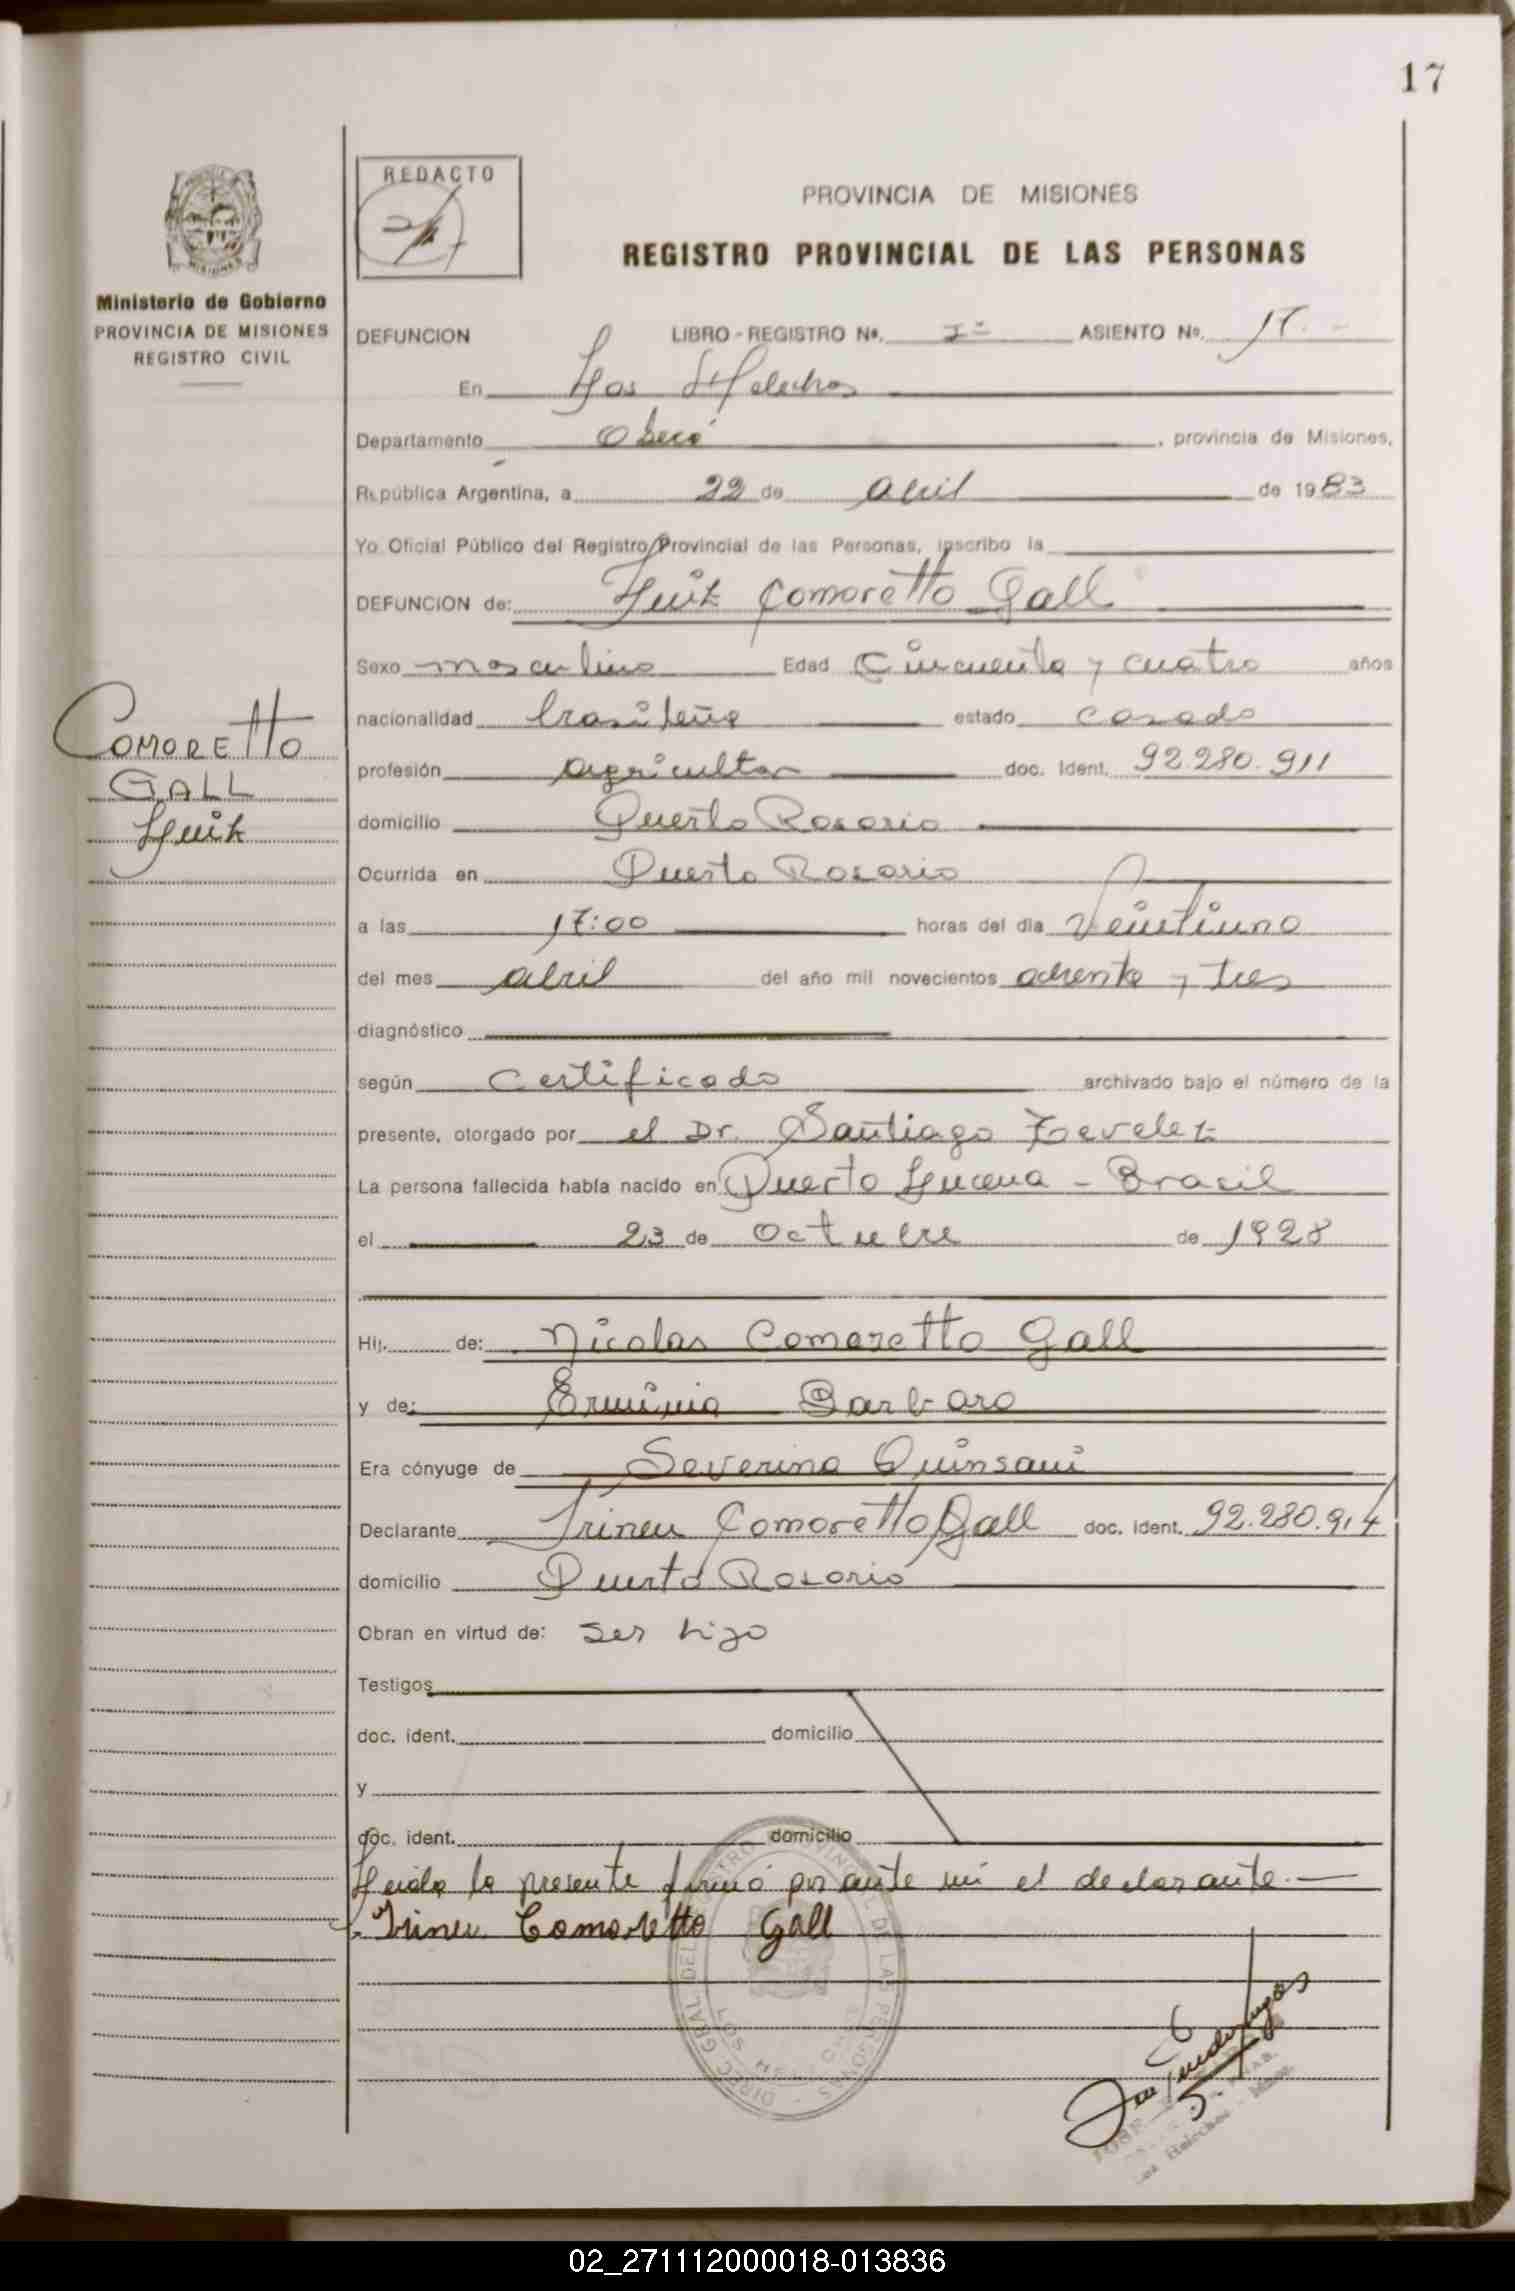 17
REDACTO
PROVINCIA DE MISIONES
REGISTRO PROVINCIAL DE LAS PERSONAS
Ministerio de Gobierno
PROVINCIA DE MISIONES
REGISTRO CIVIL
DEFUNCION LIBRO - REGISTRO No. Iº ASIENTO No. 17.-
En Los Helechos
Departamento Oberá, provincia de Misiones,
República Argentina, a 22 de abril de 1983
Yo Oficial Público del Registro Provincial de las Personas, inscribo la
DEFUNCION de: Luiz Comoretto Gall
Sexo masculino Edad Cincuenta y cuatro años
nacionalidad brasileña estado casado
COMORETTO
GALL
Luiz
profesión agricultor doc. ident. 92.280.911
domicilio Puerto Rosario
Ocurrida en Puerto Rosario
a las 17:00 horas del día Veintiuno
del mes abril del año mil novecientos ochenta y tres
diagnóstico
según Certificado archivado bajo el número de la
presente, otorgado por el Dr. Santiago
La persona fallecida había nacido en Puerto Lucena - Brasil
el 23 de Octubre de 1928
Hij. de: Nicolas Comoretto Gall
y de: Erminia Barbaro
Era cónyuge de Severina Quinsani
Declarante Irineu Comoretto Gall doc. ident. 92.280.914
domicilio Puerto Rosario
Obran en virtud de: ser hijo
Testigos
doc. ident. domicilio
y
doc. ident. domicilio
Leida la presente firmó por ante mi el declarante.-
Irineu Comoretto Gall
DIREC. GRAL. DEL REGISTRO PROVINCIAL DE LAS PERSONAS
LOS HELECHOS
02_271112000018-013836